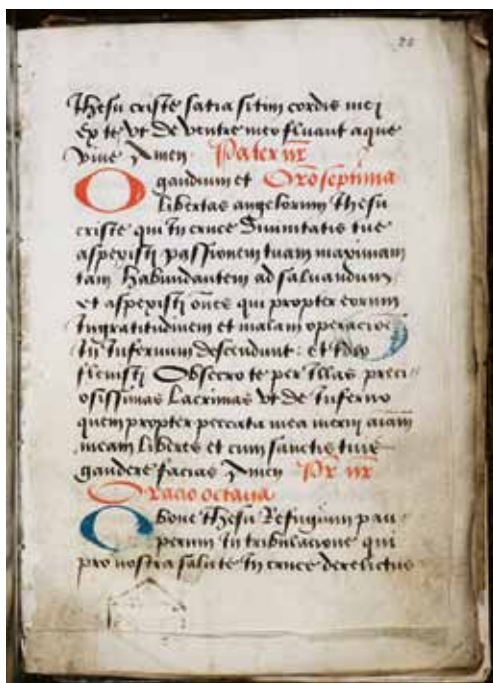 28
Jhesu criste satia sitim cordis mei
ex te vt de ventre meo fluant aque
viue Amen Pater nr
O gaudium et Oro septima
libertas angelorum Jhesu
criste qui in cruce Diuinitatis tue
aspexisti passionem tuam maximam
tam habundantem ad saluandum
et aspexisti oēs qui propter eorum
ingratitudinem et malam operacioē
in infernum descendunt : et ideo
fleuisti Obsecro te per illas preci
osissimas lacrimas vt de inferno
quem propter peccata mea merui aīam
meam liberes et cum sanctis tuis
gaudere facias Amen Pr nr
Oracio octaua
O bone Jhesu Refugium pau
perum in tribulacione qui
pro nostra salute in cruce derelictus